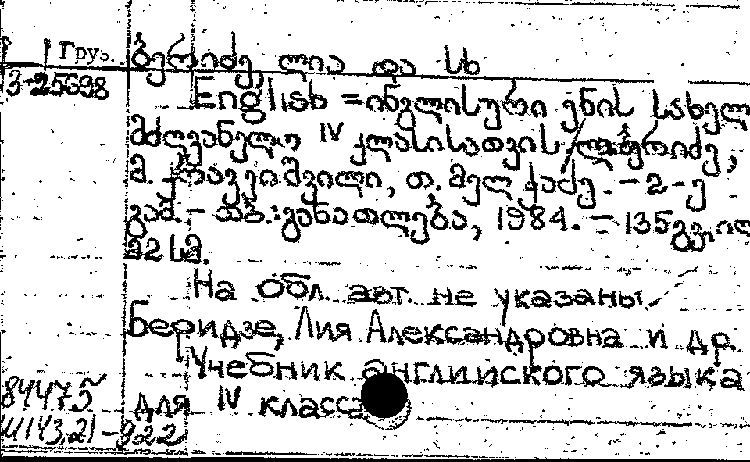 Груз. ბერიძე, ლია და სხ
3-25698 English = ინგლისური ენის სახელ
მძღვანელო IV კლასისათვის / ლ. ბერიძე,
მ. ყრავეიშვილი, თ. მელქაძე. - 2-ე
გამ. - თბ.: განათლება, 1984. - 135 გვ. ილ
22 სმ.
На обл. авт. не указаны.
Беридзе, Лия Александровна и др.
Учебник английского языка
84475 для IV класса
Ш143.21-922